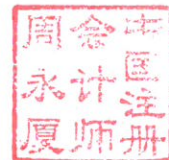 中国注册
会计师
周永厦